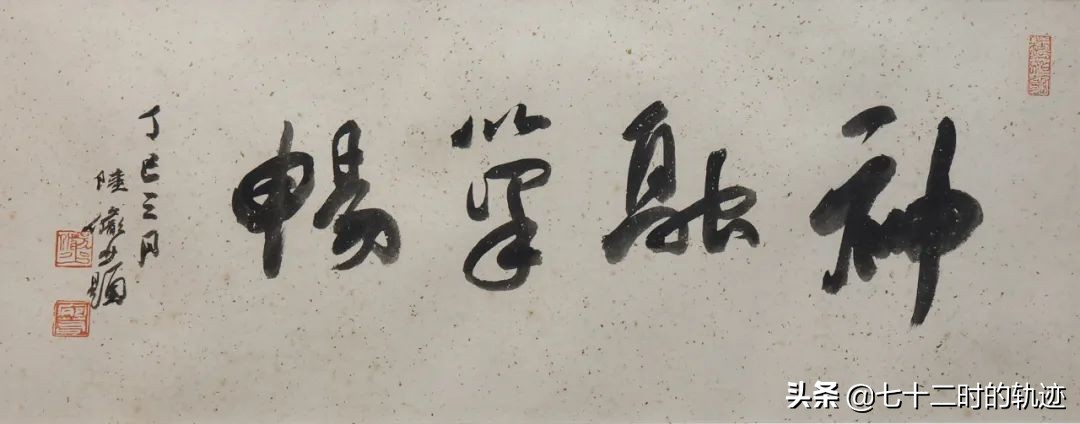 神融筆暢
丁巳三月
陸儼少題
头条 @七十二时的轨迹